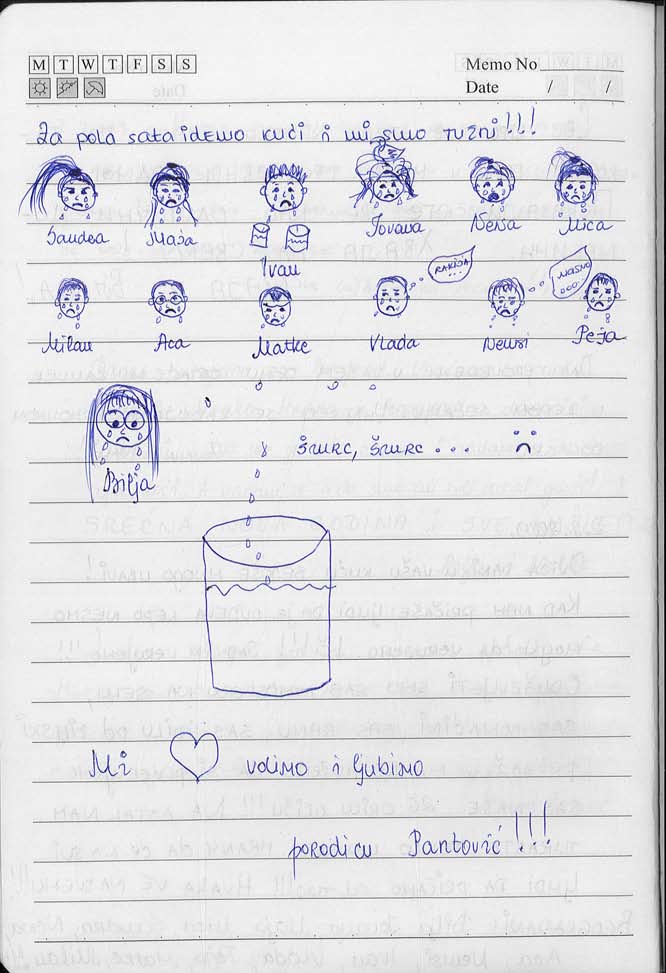 M T W T F S S
Memo No
Date / /
Za pola sata idemo kući i mi smo tužni!!!
Sandra Maja Ivan Jovana Neša Mica
RAKIJA...
MASNO...
Milan Aca Marke Vlada Neusi Peja
Bilja
ŠMRC, ŠMRC...
Mi volimo i ljubimo
porodicu Pantović!!!